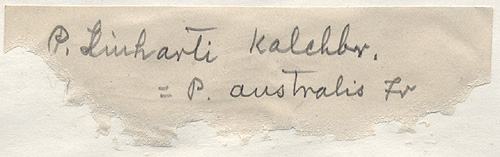 P. Linharti Kalchbr.
= P. australis Fr